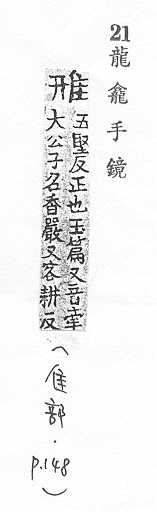 21龍龕手鏡
雃
五堅反正也玉篇又音牽
大公子名香嚴又客耕反
(隹部.p.148)